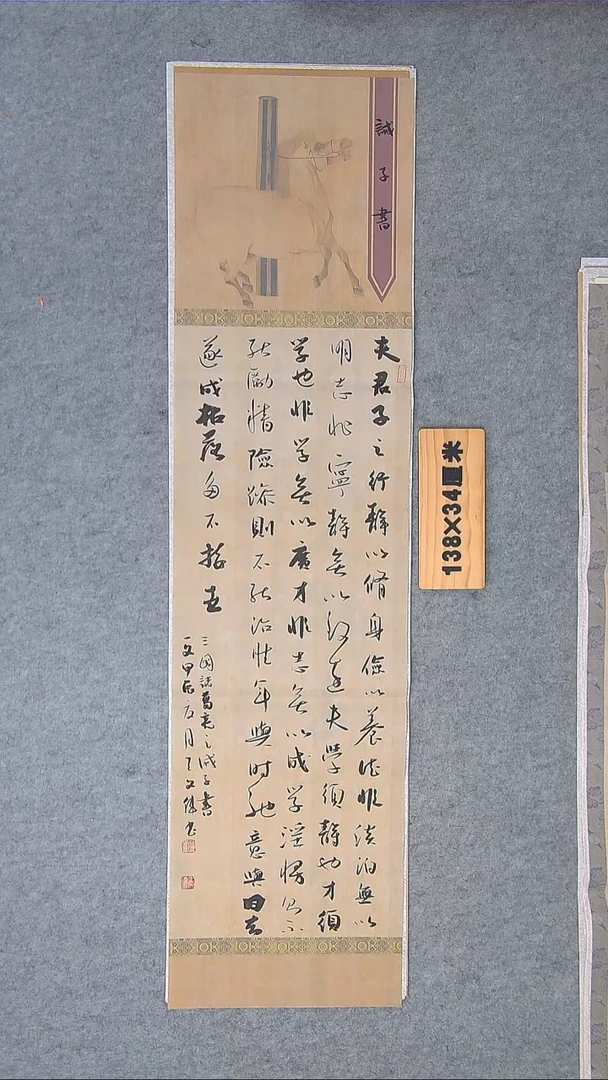 誡子書
夫君子之行靜以脩身儉以養德非淡泊無以
明志非寧靜無以致遠夫學須靜也才須
學也非學無以廣才非志無以成學淫慢則不
能勵精險躁則不能治性年與時馳意與日去
遂成枯落多不接世
三國諸葛亮之誡子書
一文甲辰月
138×34厘米